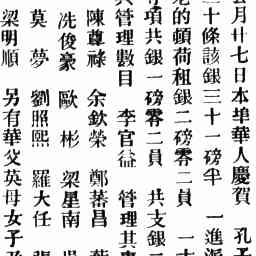 去月廿七日本埠華人慶賀　孔子
三十條該銀三十一磅半　一進派
老的頓荷租銀二磅零二員　一士
每項共銀一磅零二員　共支銀二
管理數目　李官益　管理其事
陳尊祿　余欽榮　鄭蕃昌
冼俊豪　歐彬　梁星南
莫夢　劉照熙　羅大任
梁明順　另有華父英母女子